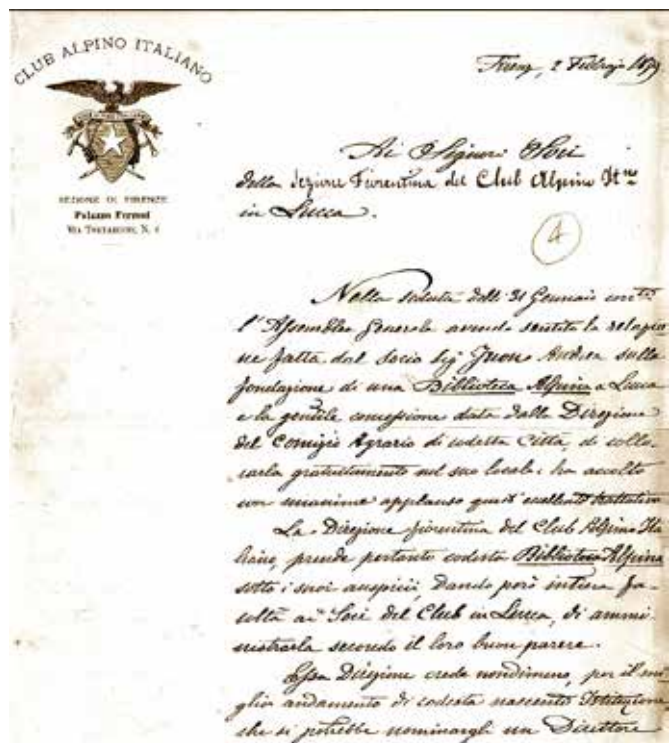 CLUB ALPINO ITALIANO
SEZIONE DI FIRENZE
Palazzo Ferroni
VIA TORNABUONI, N. 4
Firenze, 2 Febbrajo
Ai Signori Soci
della Sezione Fiorentina del Club Alpino It.no
in Lucca.
4
Nella seduta delli 31 Gennaio
l'Assemblea Generale avendo sentita la relazio
ne fatta dal socio Sig. Andrea sulla
fondazione di una Biblioteca Alpina a Lucca
e la gentile concessione data dalla Direzione
del Comizio Agrario di codesta Città, di collo-
carla gratuitamente nel suo locale; ha accolto
con unanime applauso
La Direzione fiorentina del Club Alpino Ita
liano, prende pertanto codesta Biblioteca Alpina
sotto i suoi auspicii, dando però intiera fa-
coltà ai Soci del Club in Lucca, di ammi-
nistrarla secondo il loro buon parere.
Essa Direzione crede nondimeno, per il mi-
glio andamento di codesta nascente Istituzione,
che si potrebbe nominargli un Direttore